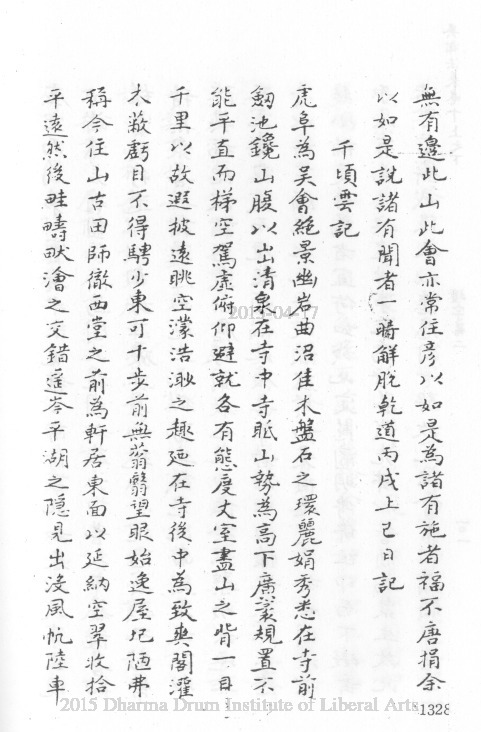 無有邊此山此會亦常住彥以如是為諸有施者福不唐捐余
以如是說諸有聞者一時解脫乾道丙戌上巳日記
千頃雲記
虎阜為吳會絕景幽岩曲沼佳木盤石之環麗娟秀悉在寺前
劒池鑱山腹以出清泉在寺中寺眡山勢為高下廣袤規置不
能平直而梯空駕虛俯仰避就各有態度丈室盡山之背一目
千里以故遐披遠眺空濛浩渺之趣廼在寺後中為致爽閣灌
木蔽虧目不得騁少東可十步前無蓊翳望眼始逸屋圮陋弗
稱今住山古田師徹西堂之前為軒居東面以延納空翠收拾
平遠然後畦疇畎澮之交錯遙岑平湖之隱見出沒風帆陸車
2015-04-17
2015 Dharma Drum Institute of Liberal Arts
1328